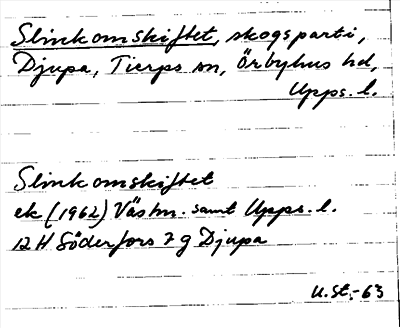 Slinkomskiftet, skogsparti,
Djupa, Tierps sn, Örbyhus hd,
Upps. l.
Slinkomskiftet
ek (1962) Västm. samt Upps. l.
12 H Söderfors 7 g Djupa
U.St.-63